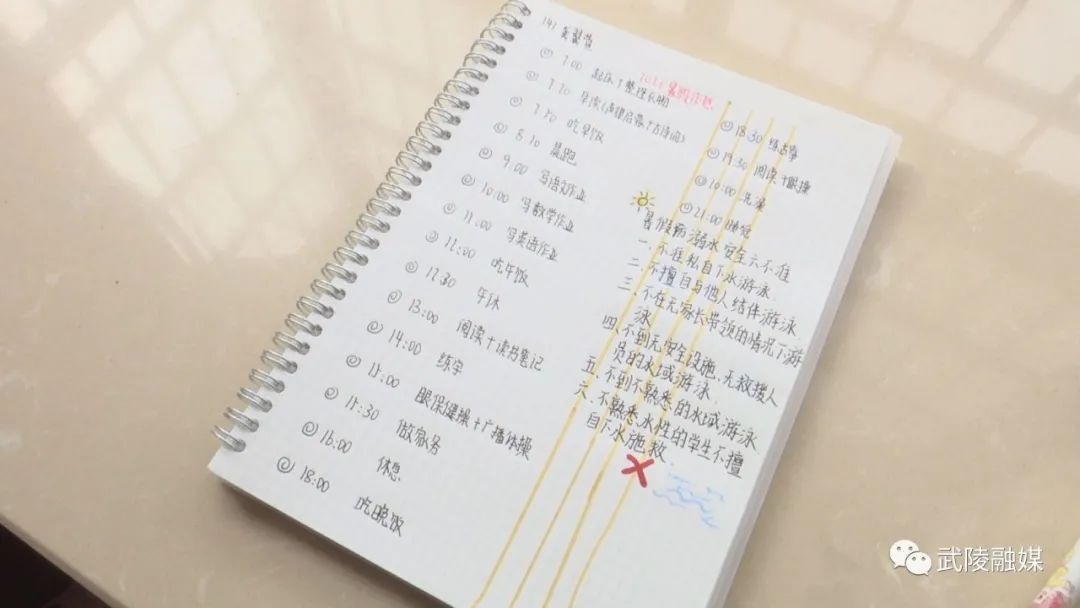 141
暑假作息
7:00 起床+整理衣物
7:20 早读(声律启蒙+古诗词)
7:50 吃早饭
8:10 晨跑
9:00 写语文作业
10:00 写数学作业
11:00 写英语作业
12:00 吃午饭
12:30 午休
13:00 阅读+读书笔记
14:00 练字
15:00 眼保健操+广播体操
15:30 做家务
16:00 休息
18:00 吃晚饭
18:30 练古筝
19:30 阅读+眼操
洗澡
21:00 睡觉
暑假防溺水安全六不准
一、不准私自下水游泳
二、不擅自与他人结伴游泳
三、不在无家长带领的情况下游
泳
四、不到无安全设施、无救援人
员的水域游泳
五、不到不熟悉的水域游泳
六、不熟悉水性的学生不擅
自下水施救
武陵融媒